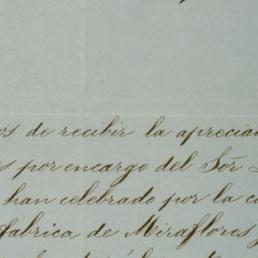 os de recibir la aprecia
s por encargo del Sōr
han celebrado por la c
fabrica de Miraflores